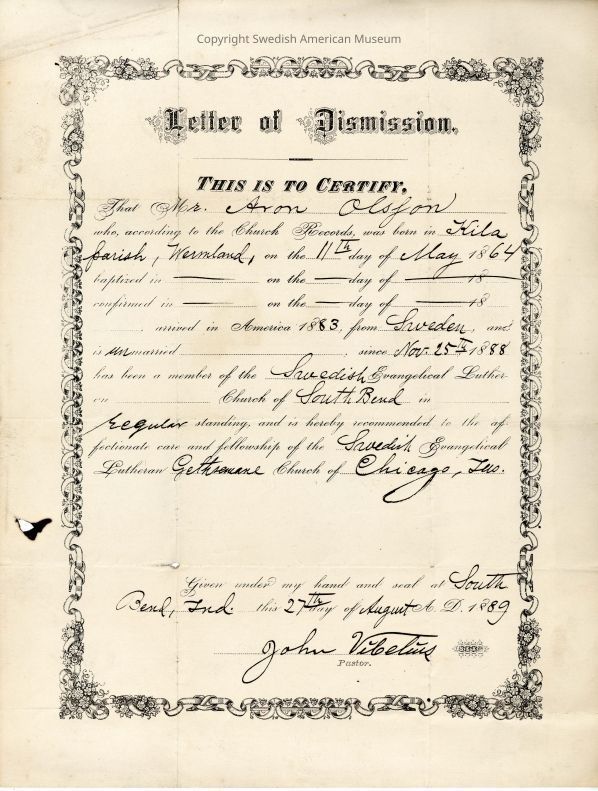 Copyright Swedish American Museum
Letter of Dismission.
THIS IS TO CERTIFY,
That Mr. Aron Olsson
who, according to the Church Records, was born in Kila
parish, Wermland, on the 11th day of May 1864
baptized in on the day of 18
confirmed in on the day of 18
arrived in America 1883, from Sweden, and
is unmarried since Nov. 25th 1888
has been a member of the Swedish Evangelical Luther-
an Church of South Bend in
regular standing, and is hereby recommended to the af-
fectionate care and fellowship of the Swedish Evangelical
Lutheran Gethsemane Church of Chicago, Ills.
Given under my hand and seal at South
Bend, Ind. this 27th day of August A. D. 1889
John Vibelius
Pastor.